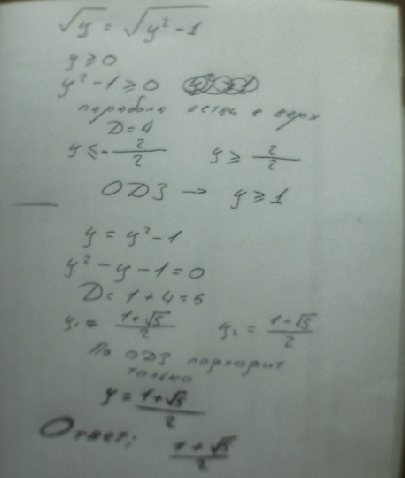 √y = √y²-1
y ≥ 0
y² - 1 ≥ 0
парабола ветви в верх
D = 4
y ≤ - 2/2   y ≥ 2/2
ОДЗ → y ≥ 1
y = y² - 1
y² - y - 1 = 0
D = 1 + 4 = 5
y₁ = (1+√5)/2   y₂ = (1-√5)/2
По ОДЗ подходит
только
y = (1+√5)/2
Ответ: (1+√5)/2